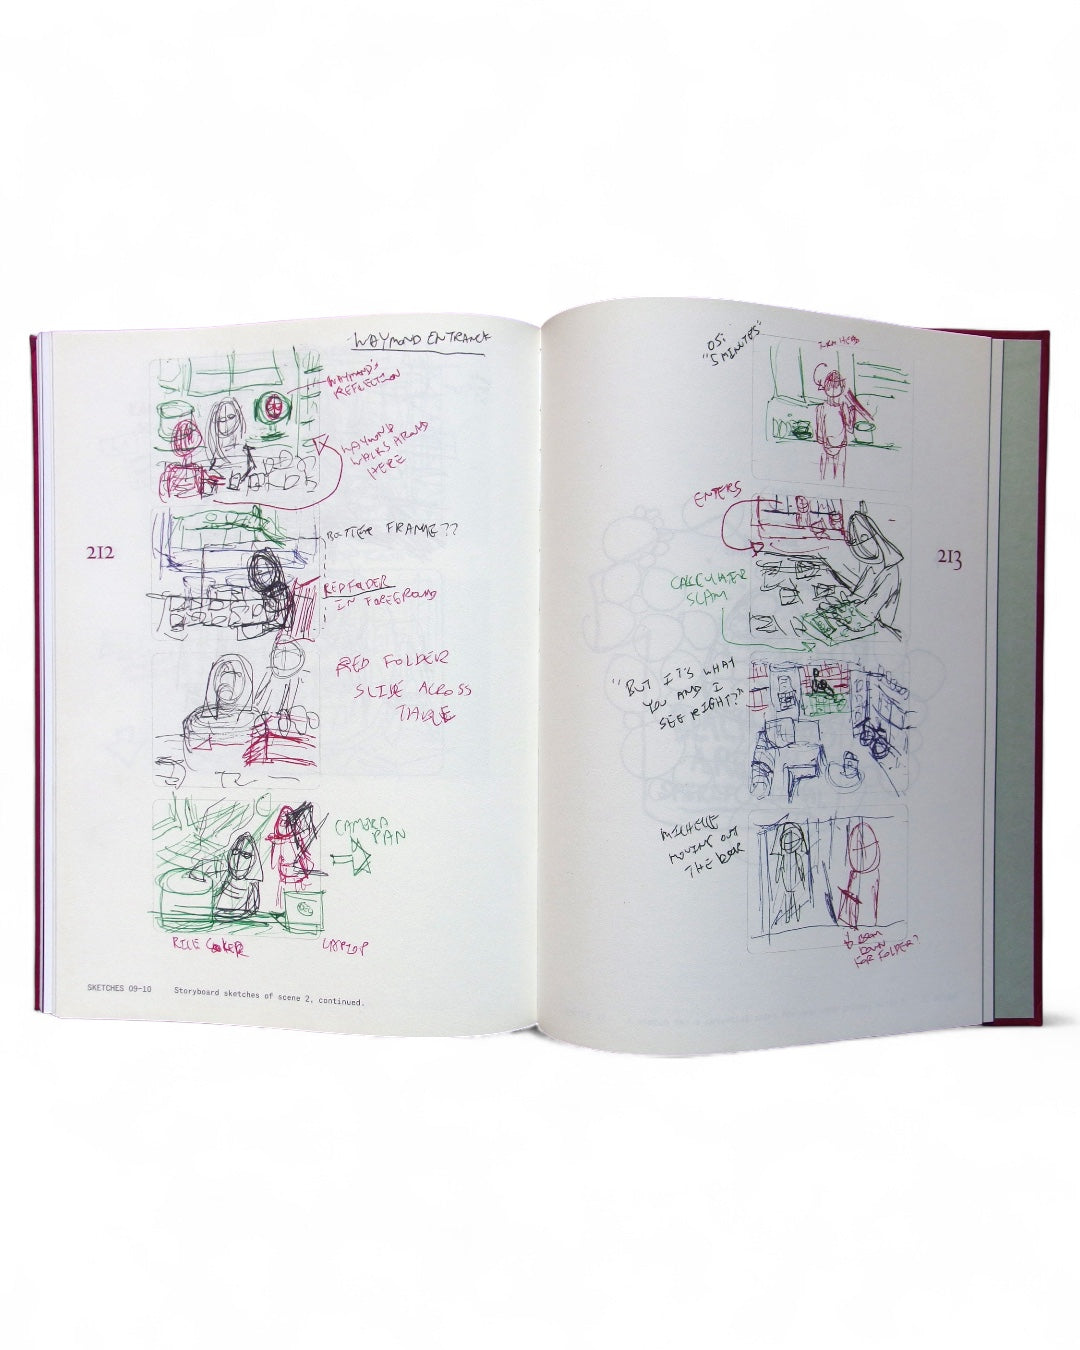 WAYMOND ENTRANCE
WAYMOND'S
REFLECTION
WAYMOND
WALKS AROUND
HERE
212
BOTTER FRAME??
RED FOLDER
IN FOREGROUND
RED FOLDER
SLIDE ACROSS
TABLE
CAMERA
PAN
RICE COOKER
LAPTOP
SKETCHES 09–10 Storyboard sketches of scene 2, continued.
"5 MINUTES"
TURN HEAD
ENTERS
213
CALCULATER
SLAM
"BUT IT'S WHAT
YOU AND I
SEE RIGHT?"
MICHELLE
MOVING OUT
THE DOOR
DOWN
FOR FOLDER?